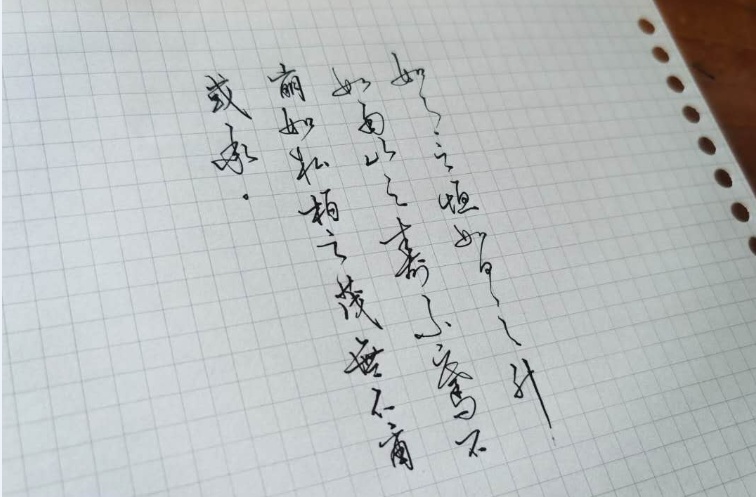 如月之恒如日之升
如南山之寿不骞不
崩如松柏之茂無不爾
或承。